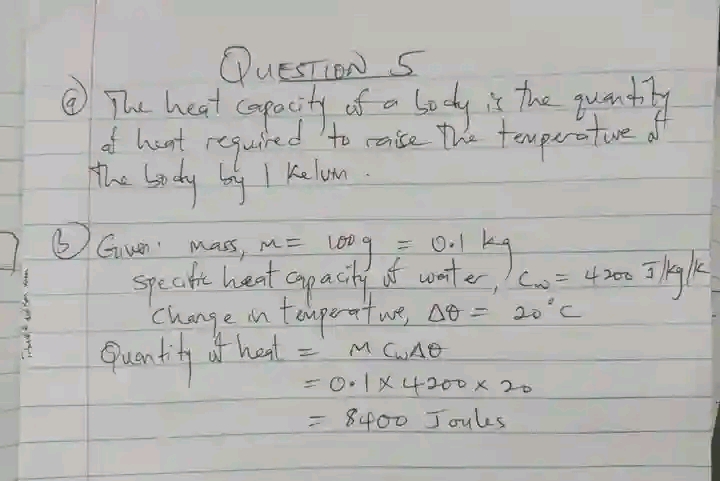 QUESTION 5
(a) The heat capacity of a body is the quantity
of heat required to raise the temperature of
the body by 1 Kelvin.
(b) Given: mass, m = 100g = 0.1 kg
specific heat capacity of water, Cw = 4200 J/kg/K
change in temperature, Δθ = 20°C
Quantity of heat = M CwΔθ
= 0.1 x 4200 x 20
= 8400 Joules